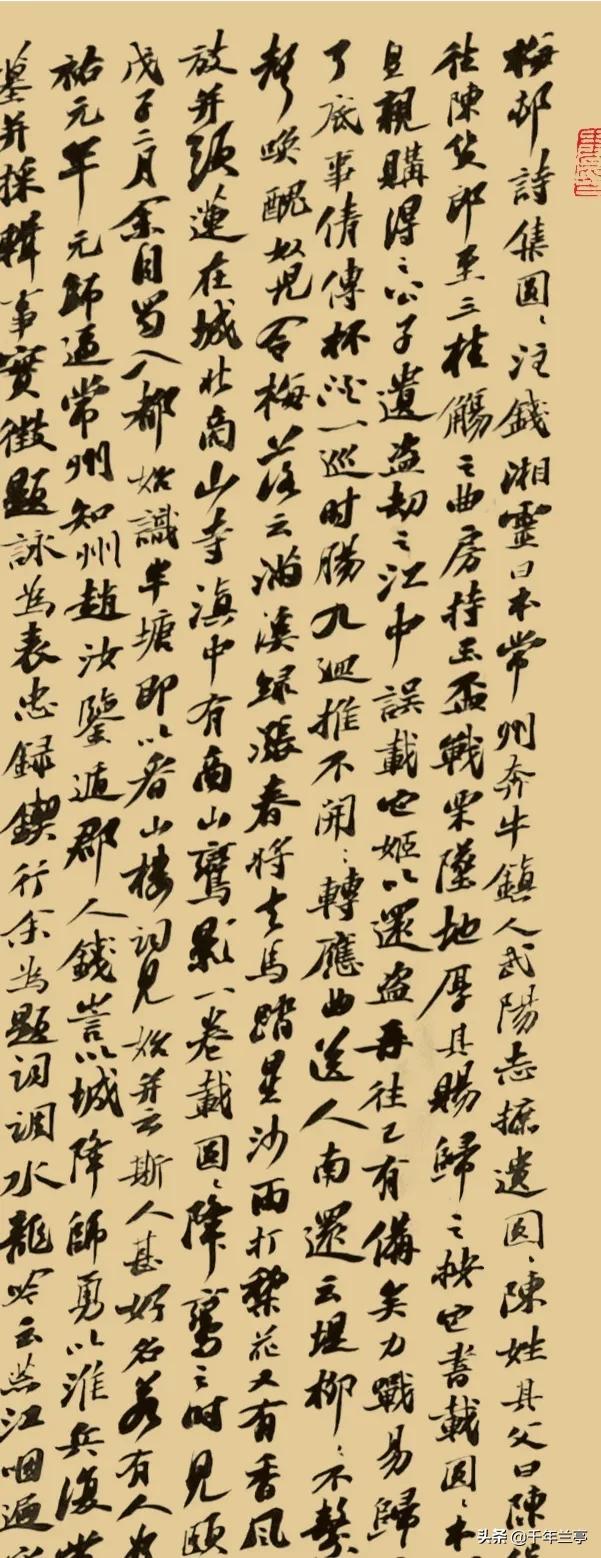 梅邨詩集圆〻注錢湘靈曰本常州奔牛鎮人武陽志摭遺圆〻陳姓其父曰陳
往陳貨郎至三桂觴之曲房持玉盃戰栗墜地厚其賜歸之按他書載圆〻本
且親購得之公子遺盗劫之江中誤載他姬以還盗再往已有備矣力戰易歸
了底事倩傳杯一巡时腸九迴推不開〻轉應曲送人南還云堤柳〻不繫
聲喚醜奴兒令梅落云满溪绿漲春将去马踏星沙雨打棃花又有香風
放并頭蓮在城北商山寺滇中有商山鸞影一卷載圆〻降鸞之时見頤
戊子二月余自蜀入都始識半塘即以看山樓词見始并云斯人甚好名若有人
祐元年元師逼常州知州趙汝鑒遁郡人錢訔以城降師勇以淮兵復常
墓并採輯事實徵題詠为表忠録鍥行余为題词调水龍吟云江咽過
头条 @千年兰亭